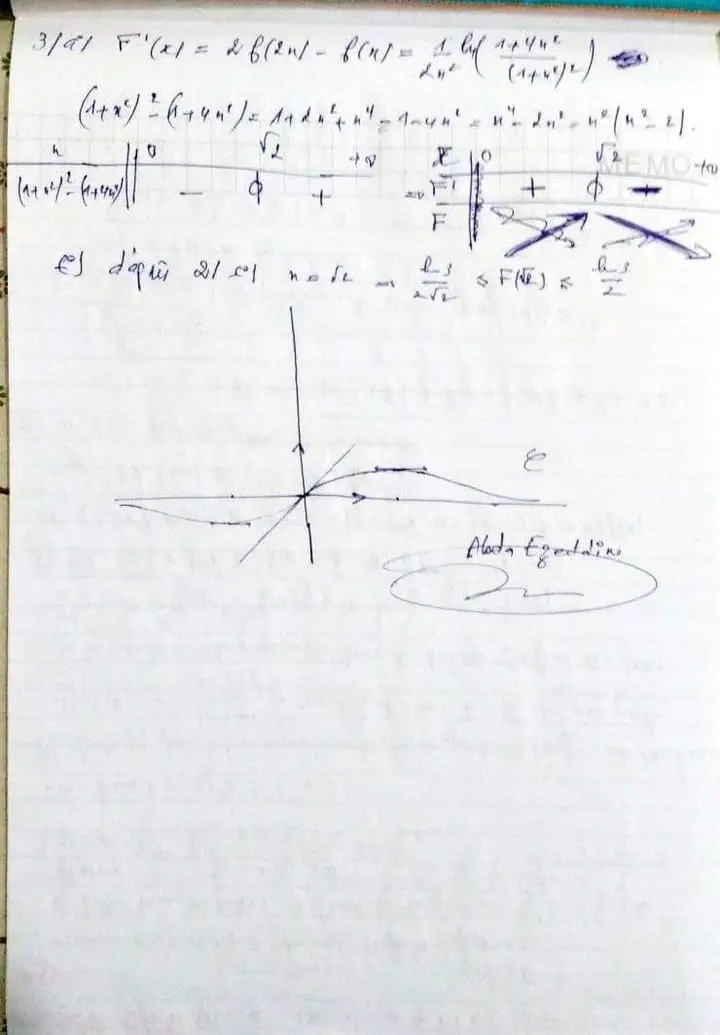 3/a) F'(x) = 2f(2x) - f(x) = 1/2x² ln((1+4x²)/(1+x²)²)
(1+x²)² - (1+4x²) = 1+2x²+x⁴-1-4x² = x⁴-2x² = x²(x²-2).
x 0 √2 +∞
(1+x²)² - (1+4x²) - 0 +
x 0 √2 +∞
F' + 0 -
F
d'après 2/c) x = √2 → ln 3/2√2 ≤ F(√2) ≤ ln 3/2
C
MEMO